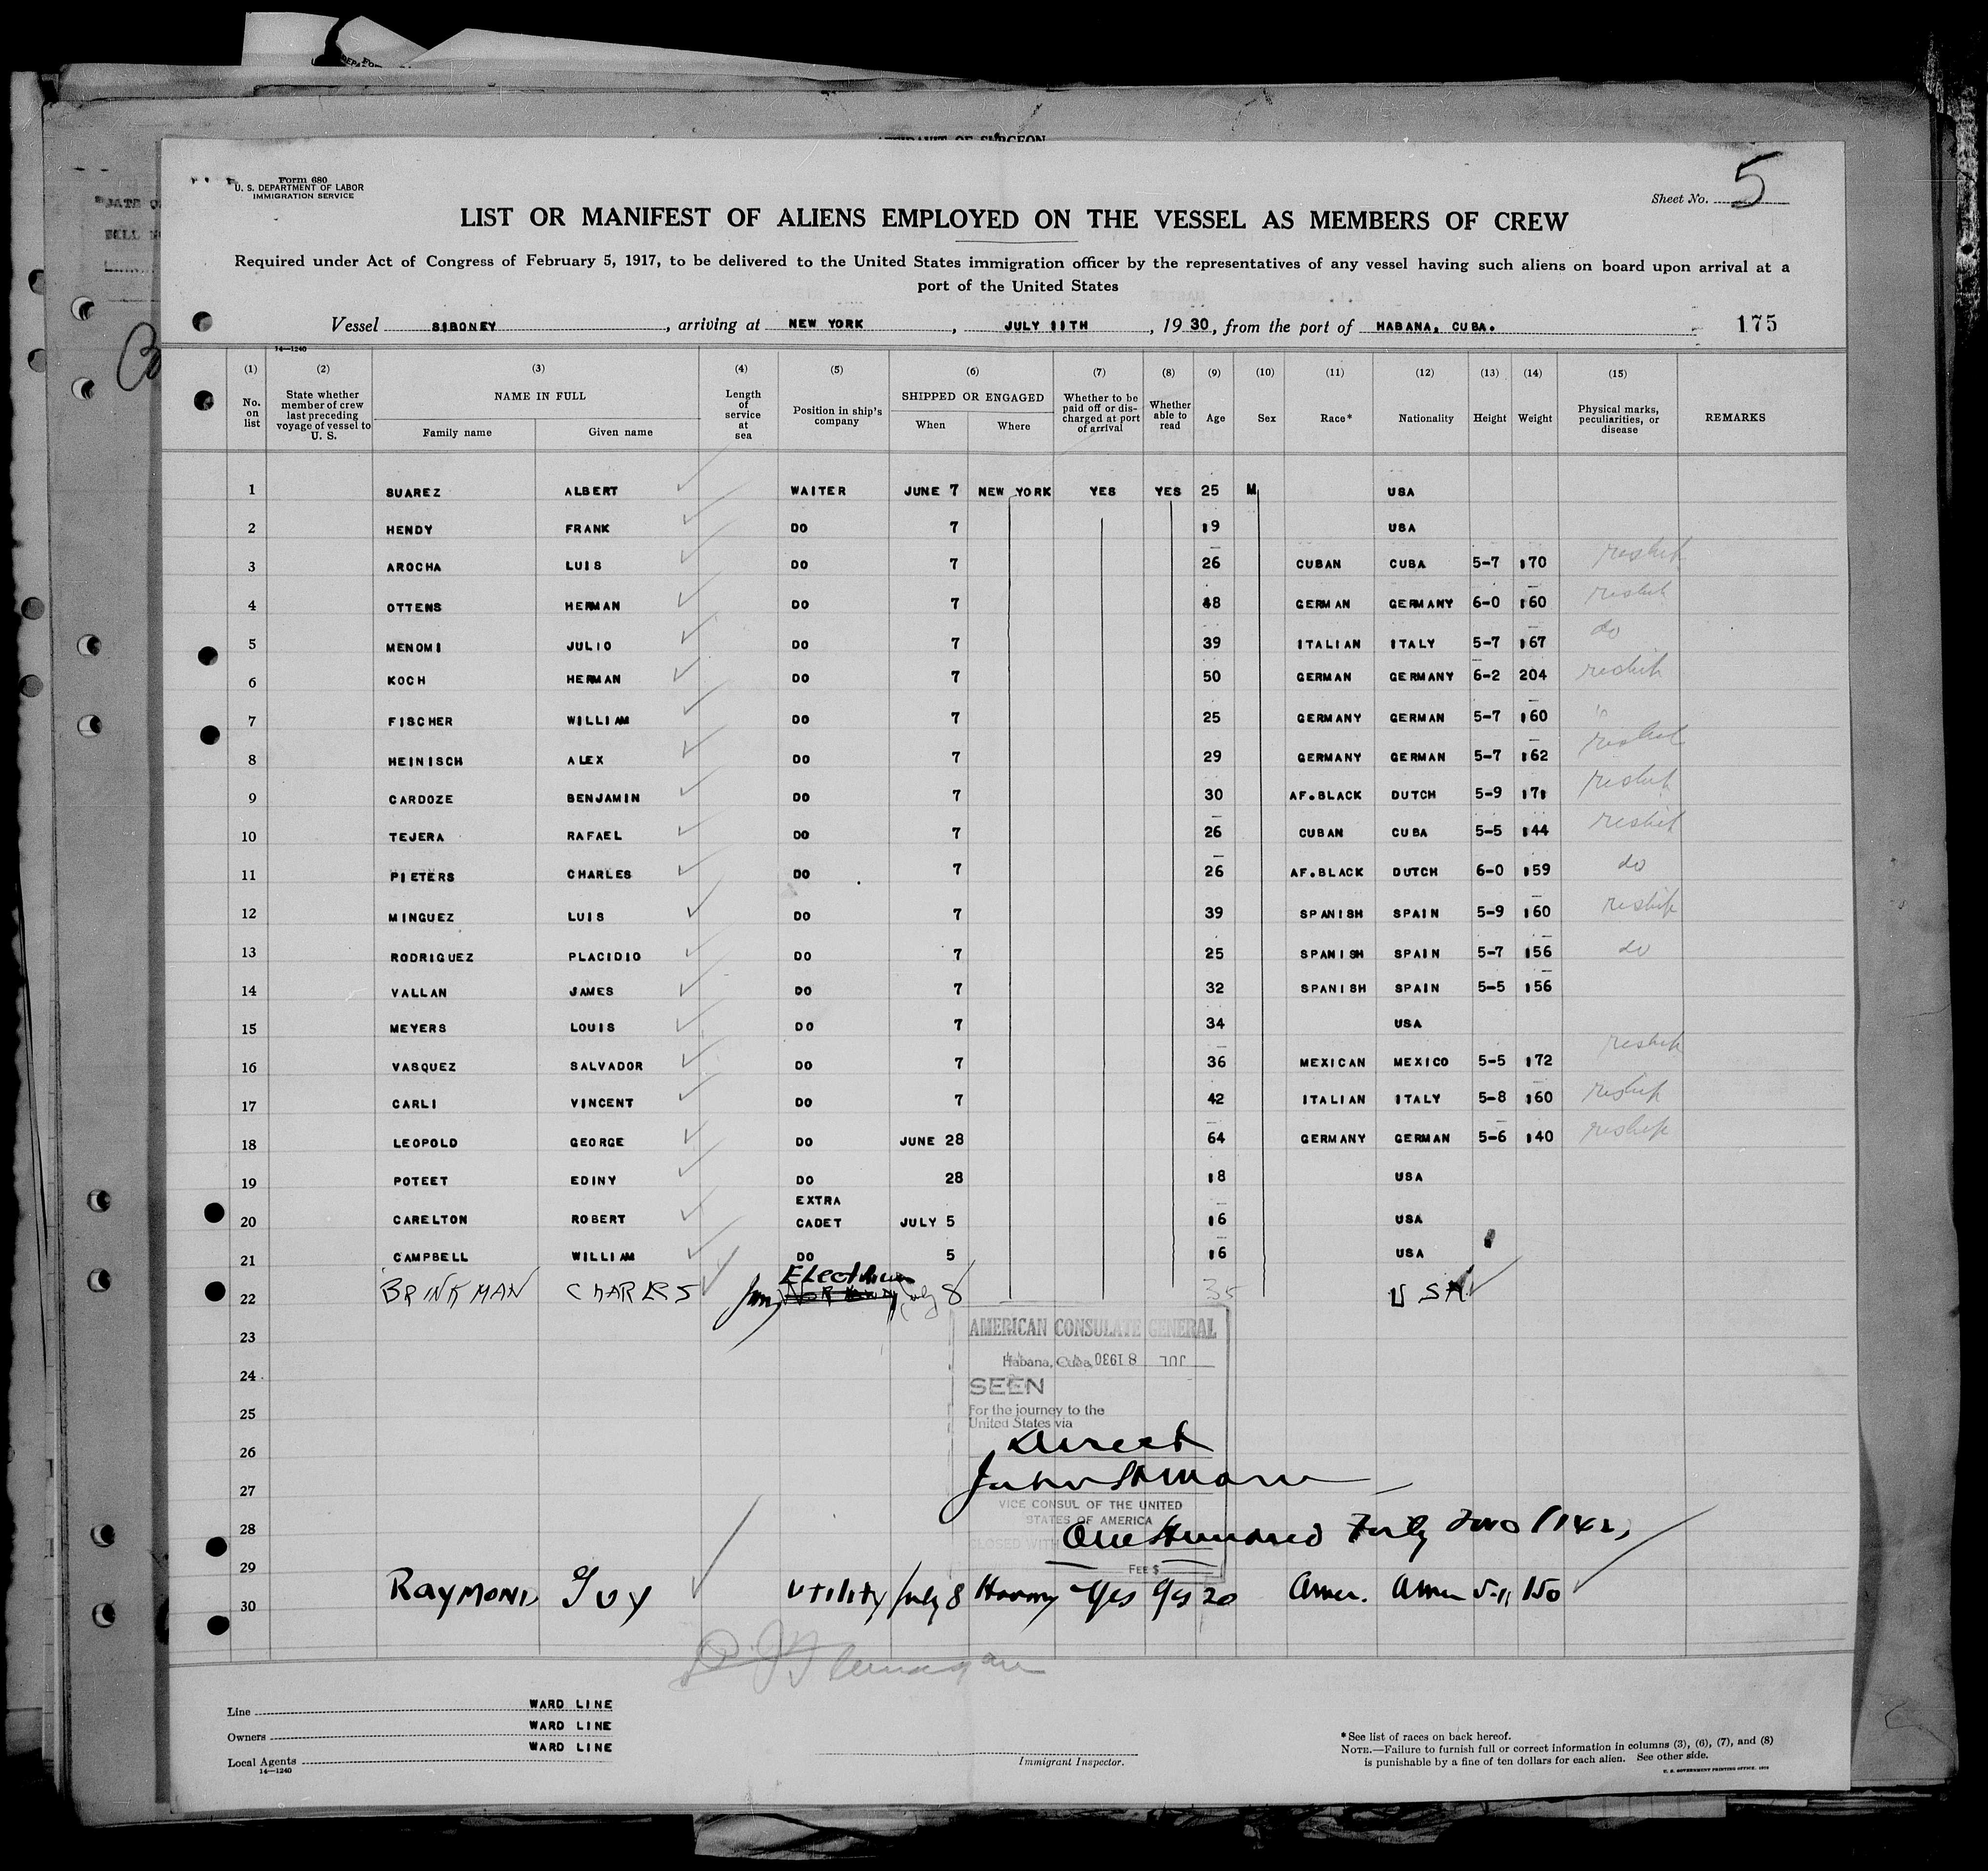 AFFIDAVIT OF SURGEON
Form 680
U. S. DEPARTMENT OF LABOR
IMMIGRATION SERVICE
Sheet No. 5
LIST OR MANIFEST OF ALIENS EMPLOYED ON THE VESSEL AS MEMBERS OF CREW
Required under Act of Congress of February 5, 1917, to be delivered to the United States immigration officer by the representatives of any vessel having such aliens on board upon arrival at a
port of the United States
Vessel SIBONEY, arriving at NEW YORK, JULY 11TH, 1930, from the port of HABANA, CUBA. 175
14—1240
(1) No. on list (2) State whether member of crew last preceding voyage of vessel to U. S. (3) NAME IN FULL Family name Given name (4) Length of service at sea (5) Position in ship's company (6) SHIPPED OR ENGAGED When Where (7) Whether to be paid off or discharged at port of arrival (8) Whether able to read (9) Age (10) Sex (11) Race* (12) Nationality (13) Height (14) Weight (15) Physical marks, peculiarities, or disease REMARKS
1 SUAREZ ALBERT WAITER JUNE 7 NEW YORK YES YES 25 M USA
2 HENDY FRANK DO 7 19 USA
3 AROCHA LUIS DO 7 26 CUBAN CUBA 5-7 170 reship
4 OTTENS HERMAN DO 7 48 GERMAN GERMANY 6-0 160 reship
5 MENOMI JULIO DO 7 39 ITALIAN ITALY 5-7 167 do
6 KOCH HERMAN DO 7 50 GERMAN GERMANY 6-2 204 reship
7 FISCHER WILLIAM DO 7 25 GERMANY GERMAN 5-7 160 "
8 HEINISCH ALEX DO 7 29 GERMANY GERMAN 5-7 162 reship
9 CARDOZE BENJAMIN DO 7 30 AF.BLACK DUTCH 5-9 171 reship
10 TEJERA RAFAEL DO 7 26 CUBAN CUBA 5-5 144 reship
11 PIETERS CHARLES DO 7 26 AF.BLACK DUTCH 6-0 159 do
12 MINGUEZ LUIS DO 7 39 SPANISH SPAIN 5-9 160 reship
13 RODRIGUEZ PLACIDIO DO 7 25 SPANISH SPAIN 5-7 156 do
14 VALLAN JAMES DO 7 32 SPANISH SPAIN 5-5 156
15 MEYERS LOUIS DO 7 34 USA
16 VASQUEZ SALVADOR DO 7 36 MEXICAN MEXICO 5-5 172 reship
17 CARLI VINCENT DO 7 42 ITALIAN ITALY 5-8 160 reship
18 LEOPOLD GEORGE DO JUNE 28 64 GERMANY GERMAN 5-6 140 reship
19 POTEET EDINY DO 28 18 USA
20 CARELTON ROBERT EXTRA CADET JULY 5 16 USA
21 CAMPBELL WILLIAM DO 5 16 USA
22 BRINKMAN CHARLES Electrician July 8 35 USA
23
AMERICAN CONSULATE GENERAL
24
Habana, Cuba, JUL 8 1930
SEEN
25
For the journey to the
United States via
26
Direct
27
VICE CONSUL OF THE UNITED
STATES OF AMERICA
28
One Hundred Forty Two (142)
29
FEE $
30 RAYMOND GUY Utility July 8 Yes Yes 20 Amer. Amer 5-11 150
Line WARD LINE
Owners WARD LINE
Local Agents WARD LINE
14—1240
Immigrant Inspector.
*See list of races on back hereof.
NOTE.—Failure to furnish full or correct information in columns (3), (6), (7), and (8)
is punishable by a fine of ten dollars for each alien. See other side.
U. S. GOVERNMENT PRINTING OFFICE